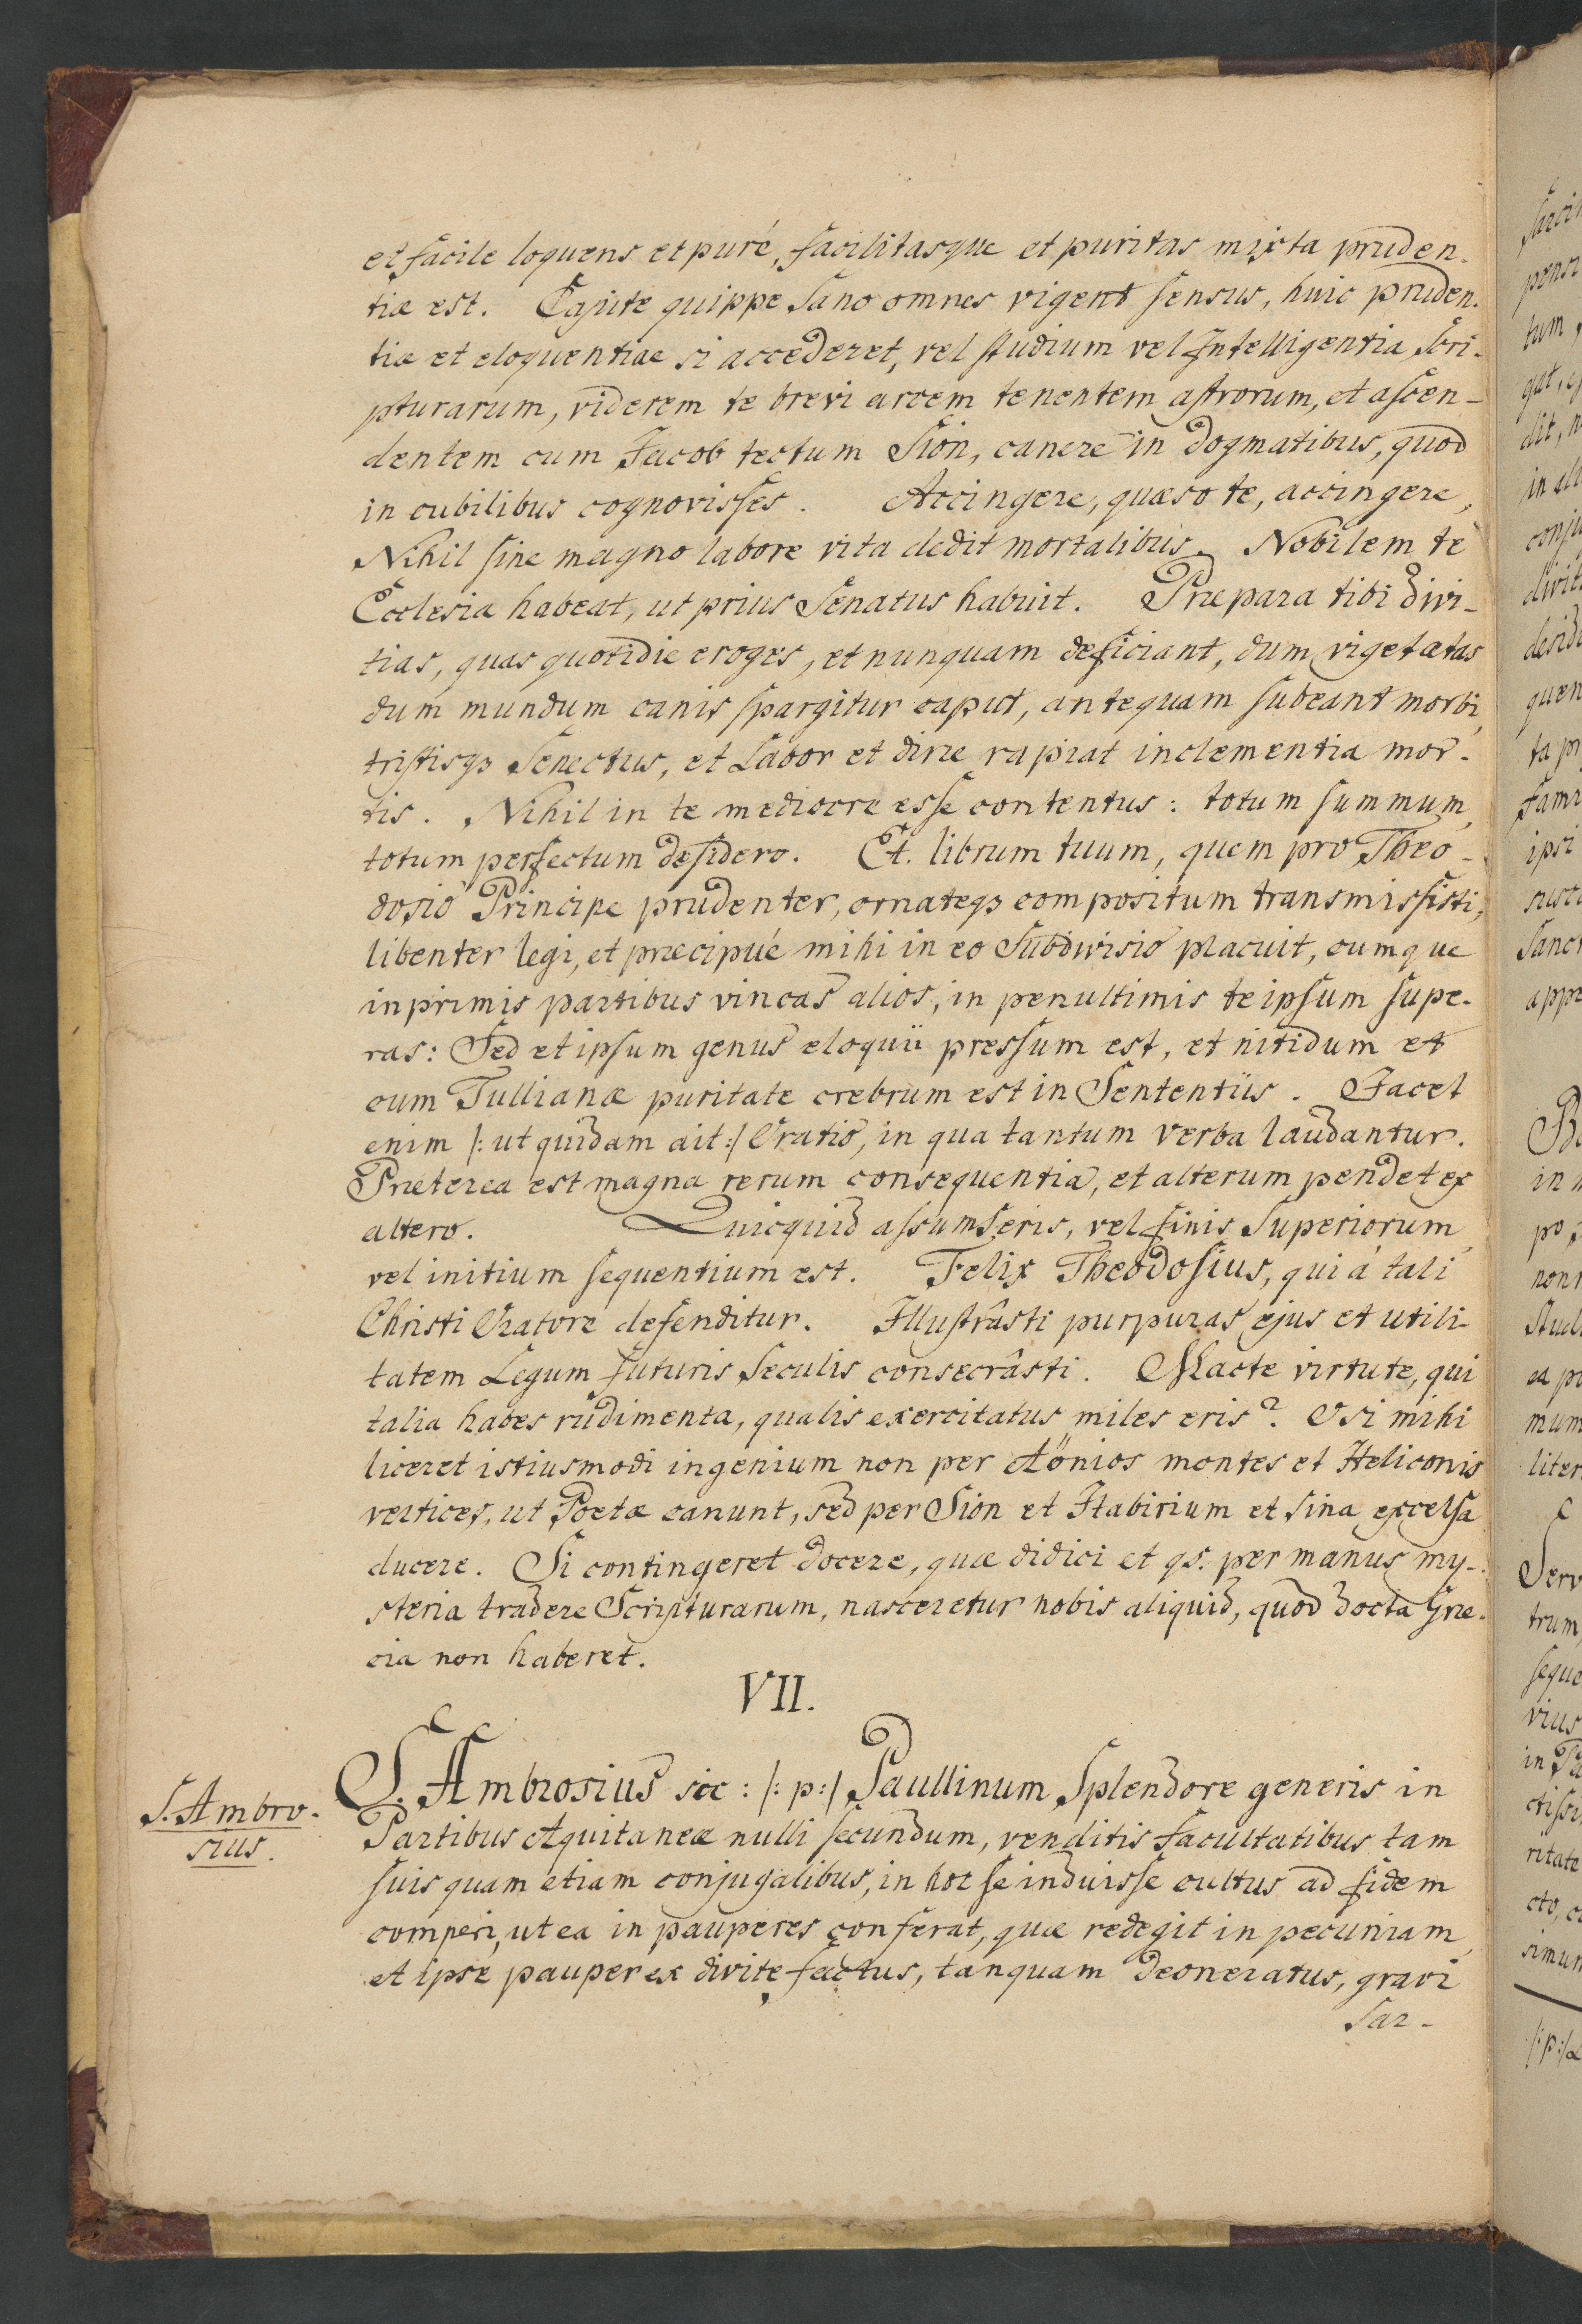 et facile loquens et puré, facilitasque et puritas mixta pruden-
tiæ est. Capite quippe Sano omnes vigent sensus, huic pruden-
tiæ et eloquentiae si accederet, vel studium vel Intelligentia Scri-
pturarum, viderem te brevi arcem tenentem astrorum, et ascen-
dentem cum Jacob tectum Sion, canere in dogmatibus, quod
in cubilibus cognovisses. Accingere, quæso te, accingere,
Nihil sine magno labore vita dedit mortalibus. Nobilem te
Ecclesia habeat, ut prius Senatus habuit. Præpara tibi divi-
tias, quas quotidie eroges, et nunquam deficiant, dum viget ætas
dum mundum canis spargitur caput, antequam subeant morbi,
tristisqz Senectus, et Labor et diræ rapiat inclementia mor-
tis. Nihil in te mediocre esse contentus: totum summum,
totum perfectum desidero. Et. librum tuum, quem pro Theo-
dosio Principe prudenter, ornateqz compositum transmissisti,
libenter legi, et præcipué mihi in eo Subdivisio placuit, cumque
in primis partibus vincas alios, in penultimis te ipsum supe-
ras: Sed et ipsum genus eloquii pressum est, et nitidum et
cum Tullianæ puritate crebrum est in Sententiis. Jacet
enim /: ut quidam ait :/ Oratio, in qua tantum verba laudantur.
Præterea est magna rerum consequentia, et alterum pendet ex
altero. Quicquid assumseris, vel finis Superiorum,
vel initium sequentium est. Felix Theodosius, qui á tali
Christi Oratore defenditur. Illustrâsti purpuras ejus et utili-
tatem Legum futuris Seculis consecrâsti. Macte virtute, qui
talia habes rudimenta, qualis exercitatus miles eris? O si mihi
liceret istiusmodi ingenium non per Aönios montes et Heliconis
vertices, ut Poetæ canunt, sed per Sion et Itabirium et sina excelsa
ducere. Si contingeret docere, quæ didici et qs. per manus my-
steria tradere Scripturarum, nasceretur nobis aliquid, quod docta Græ-
cia non haberet.
VII.
S. Ambro-
sius.
S. Ambrosius sic: /: p :/ Paullinum Splendore generis in
Partibus Aquitaneæ nulli secundum, venditis facultatibus tam
suis quam etiam conjugalibus, in hoc se induisse cultus ad fidem
comperi, ut ea in pauperes conferat, quæ redegit in pecuniam,
et ipse pauper ex divite factus, tanquam deoneratus, gravi
sar-